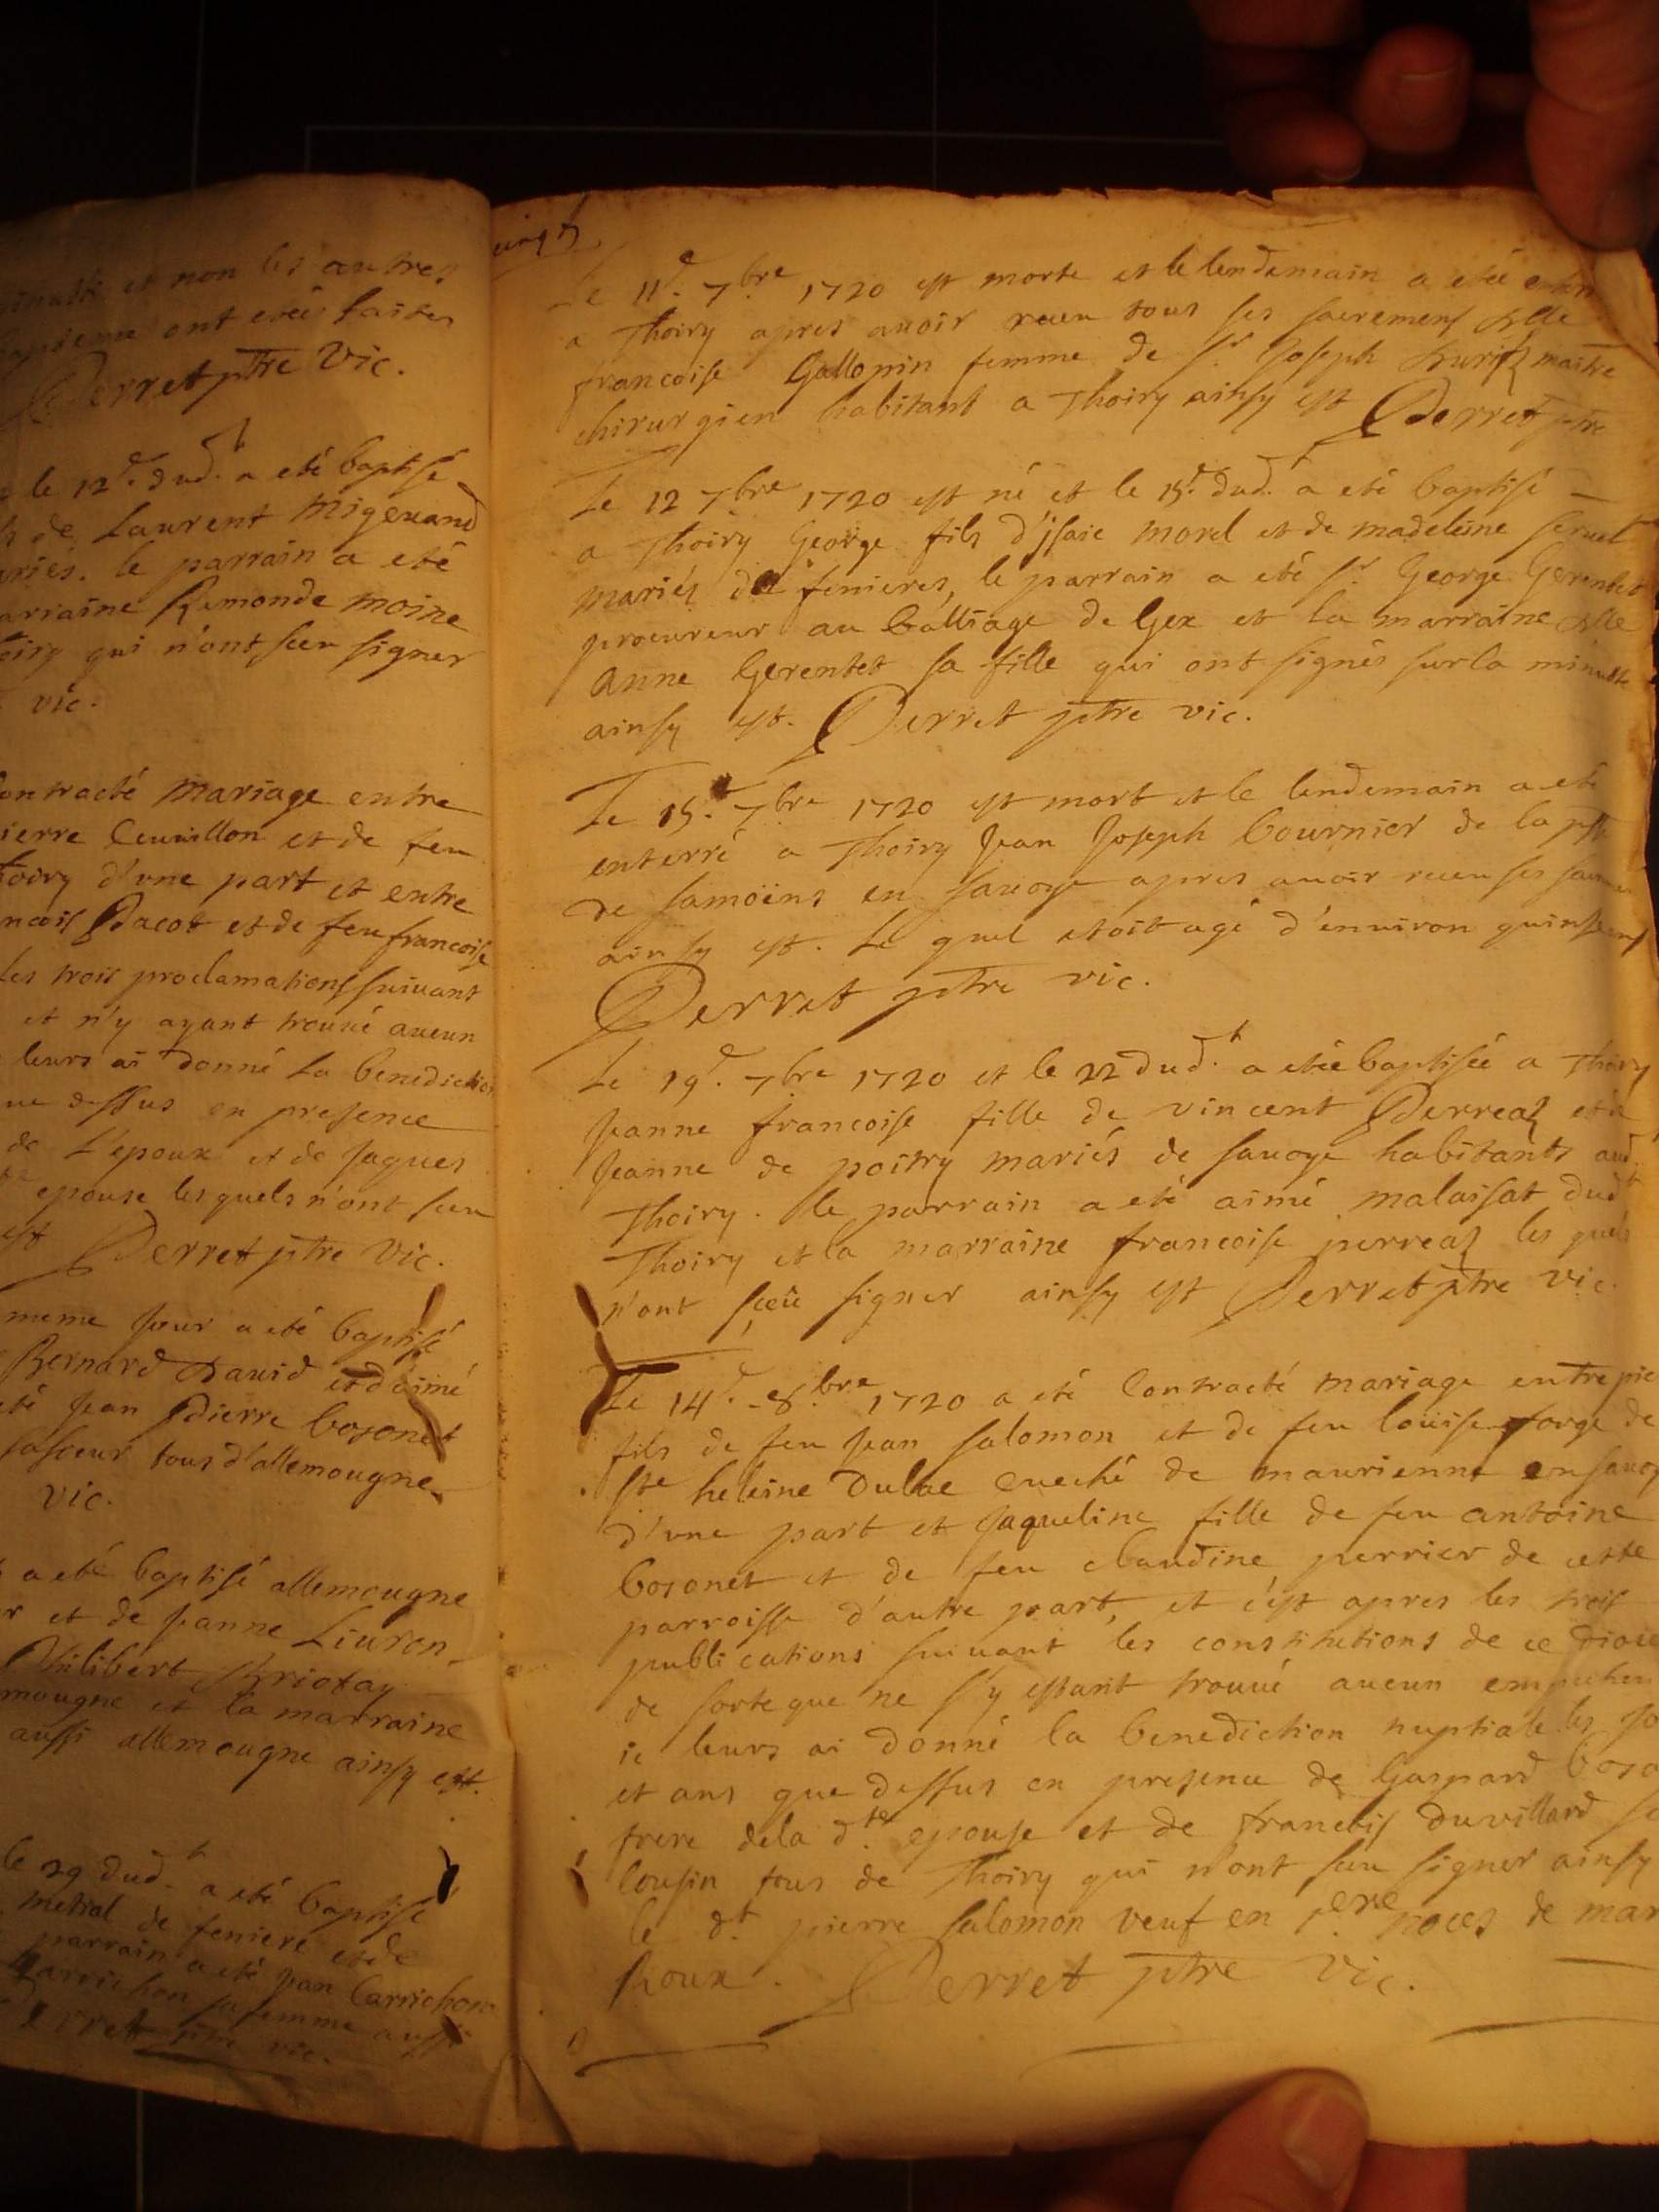 et non les autres
ont eteé faites
Perret ptre vic.
le 12e dud.t a eté baptisé
de Laurent Migeuand
mariés. le parrain a eté
marraine Remonde moine
qui n'ont sceu signer
vic.
contracté mariage entre
pierre Cuuillon et de feu
Thoiry d'vne part et entre
francois Pacot et de feu francoise
les trois proclamations suiuant
et n'y ayant trouué aucun
leurs ai donné la benediction
que dessus en presence
de L'epoux et de Jaques
epouse les quels n'ont sceu
est Perret ptre vic.
meme jour a eté baptisé
Bernard Dauid et d'aimé
eté Jean Pierre bozonet
sa soeur tous d'allemougne
vic.
a eté baptisé allemougne
et de Jeanne Liuron
Philibert Briotay
allemougne et la marraine
aussi allemougne ainsy est.
le 29 dud.t a eté baptisé
metral de feniere et de
parrain a eté Jean Carrichon
Carrichon sa femme aussi
Perret ptre vic.
Le 11e 7bre 1720 est morte et le lendemain a eteé
a Thoiry apres auoir receu tous ses sacrements dlle
francoise Gallopin femme de Sr Joseph maitre
chirurgien habitant a Thoiry ainsy est Perret ptre
Le 12 7bre 1720 est né et le 15e dud.t a eté baptisé
a Thoiry George fils d'jsaie morel et de madeleine
mariés de fenieres, le parrain a eté Sr George Gerentet
procureur au balliage de Gex et la marraine dlle
Anne Gerentet sa fille qui ont signés sur la minutte
ainsy est. Perret ptre vic.
Le 15e 7bre 1720 est mort et le lendemain a eté
enterré a Thoiry Jean Joseph bournier de la psse
de samoëns en sauoye apres auoir receu ses
ainsy est. Le quel etoit agé d'enuiron quinse ans
Perret ptre vic.
Le 19e 7bre 1720 et le 22 dud.t a eteé baptiseé a Thoiry
Jeanne francoise fille de vincent Perreaz et de
Jeanne de poitry mariés de sauoye habitants aud.t
Thoiry. le parrain a eté aimé malaisat dud.t
Thoiry et la marraine francoise perreaz les quels
n'ont sceü signer ainsy est Perret ptre vic.
Le 14e 8bre 1720 a eté Contracté mariage entre pie
fils de feu Jean Salomon et de feu loüise forge de
Ste heleine Dulac eueché de maurienne en sauoy
d'vne part et Jaqueline fille de feu antoine
bozonet et de feu claudine perrier de cette
parroisse d'autre part, et c'est apres les trois
publications suiuant les constitutions de ce dioce
de sorte que ne s'y estant trouué aucun empechem
ie leurs ai donné la benediction nuptiale les jo
et ans que dessus en presence de Gaspard bozo
frere de la d.te epouse et de francois Duvillard so
Cousin tous de Thoiry qui n'ont sceu signer ainsy
le d.t pierre Salomon veuf en pere noces de mar
houx. Perret ptre vic.